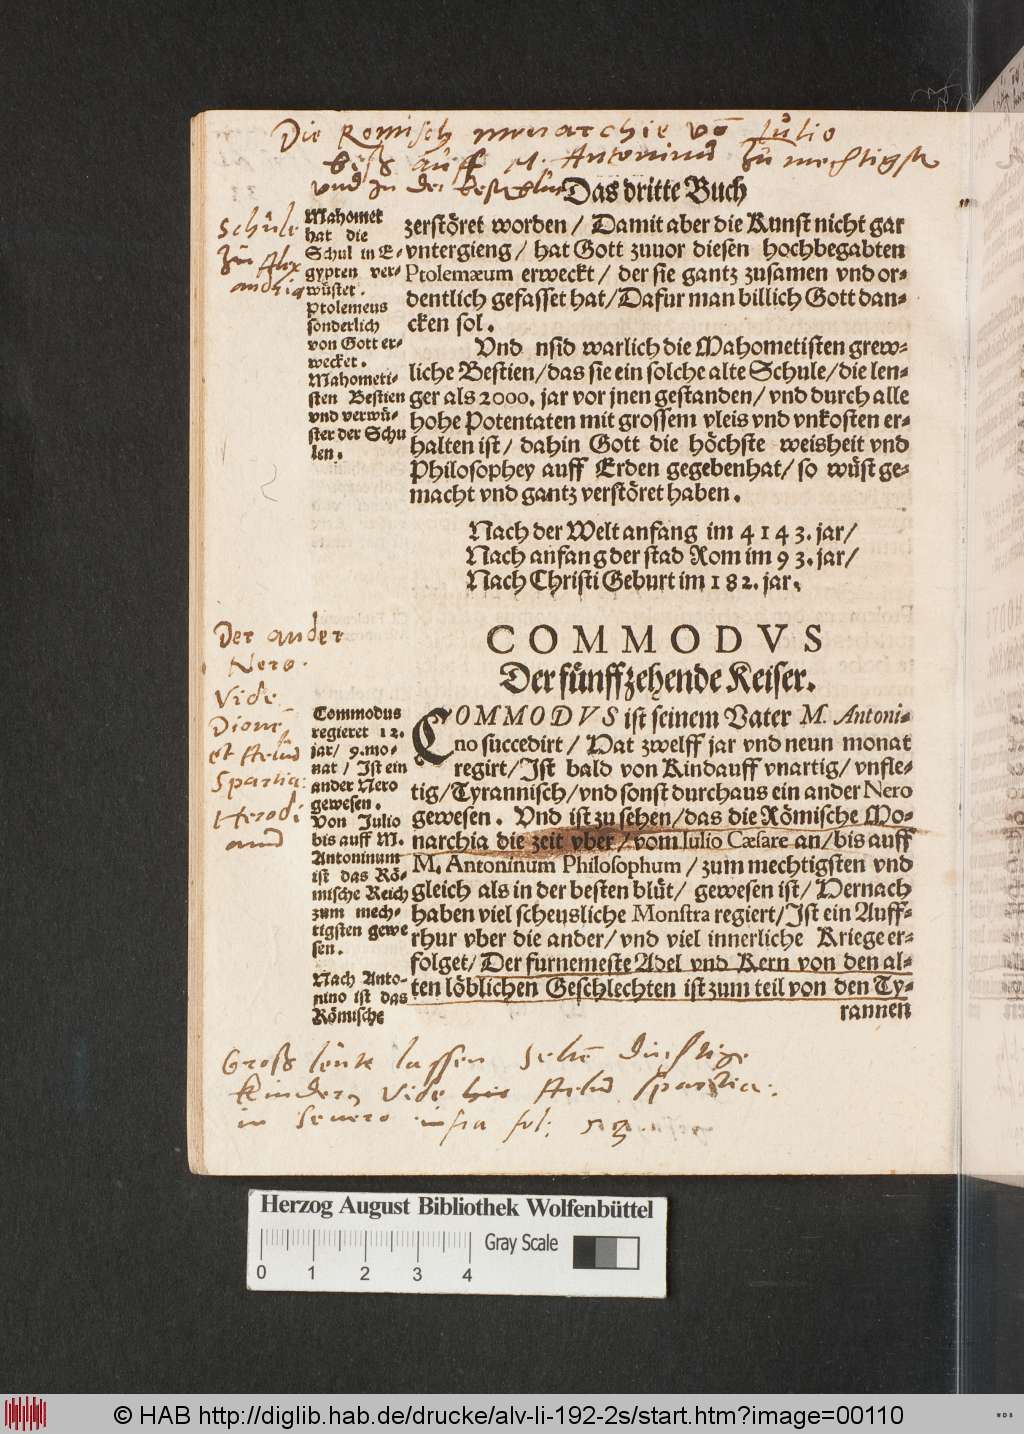 Die Romisch monarchie vō Julio
biß auff M. Antoninum Zu mechtigst
vnd in der besten blut
Das dritte Buch
Schule
zu Alex
andria
Mahomet
hat die
Schul in E-
gypten ver-
wüstet.
Ptolemeus
sonderlich
von Gott er-
wecket.
Mahometi-
sten Bestien
vnd verwü-
ster der Schu
len.
zerstöret worden / Damit aber die Kunst nicht gar
vntergieng / hat Gott zuuor diesen hochbegabten
Ptolemæum erweckt / der sie gantz zusamen vnd or-
dentlich gefasset hat / Dafur man billich Gott dan-
cken sol.
Vnd nsid warlich die Mahometisten grew-
liche Bestien / das sie ein solche alte Schule / die len-
ger als 2000. jar vor jnen gestanden / vnd durch alle
hohe Potentaten mit grossem vleis vnd vnkosten er-
halten ist / dahin Gott die höchste weisheit vnd
Philosophey auff Erden gegebenhat / so wüst ge-
macht vnd gantz verstöret haben.
Nach der Welt anfang im 4143. jar /
Nach anfang der stad Rom im 93. jar /
Nach Christi Geburt im 182. jar.
COMMODVS
Der fünffzehende Keiser.
Der ander
Nero.
Vide
Dionē
et Aeliū
Spartia:
Herodi
anū
Commodus
regieret 12.
jar / 9. mo-
nat / Ist ein
ander Nero
gewesen.
Von Julio
bis auff M.
Antoninum
ist das Rö-
mische Reich
zum mech-
tigsten gewe
sen.
Nach Anto-
nino ist das
Römische
COMMODVS ist seinem Vater M. Antoni-
no succedirt / Hat zwelff jar vnd neun monat
regirt / Ist bald von Kindauff vnartig / vnfle-
tig / Tyrannisch / vnd sonst durchaus ein ander Nero
gewesen. Vnd ist zu sehen / das die Römische Mo-
narchia die zeit vber / vom Iulio Cæsare an / bis auff
M. Antoninum Philosophum / zum mechtigsten vnd
gleich als in der besten blüt / gewesen ist / Hernach
haben viel scheusliche Monstra regiert / Ist ein Auff-
rhur vber die ander / vnd viel innerliche Kriege er-
folget / Der furnemeste Adel vnd Kern von den al-
ten löblichen Geschlechten ist zum teil von den Ty-
rannen
Groß leute lassen selten düchtige
Kinder, Vide hic Aeliū Spartia:
in Severo infra fol:
Herzog August Bibliothek Wolfenbüttel
Gray Scale
0 1 2 3 4
© HAB http://diglib.hab.de/drucke/alv-li-192-2s/start.htm?image=00110